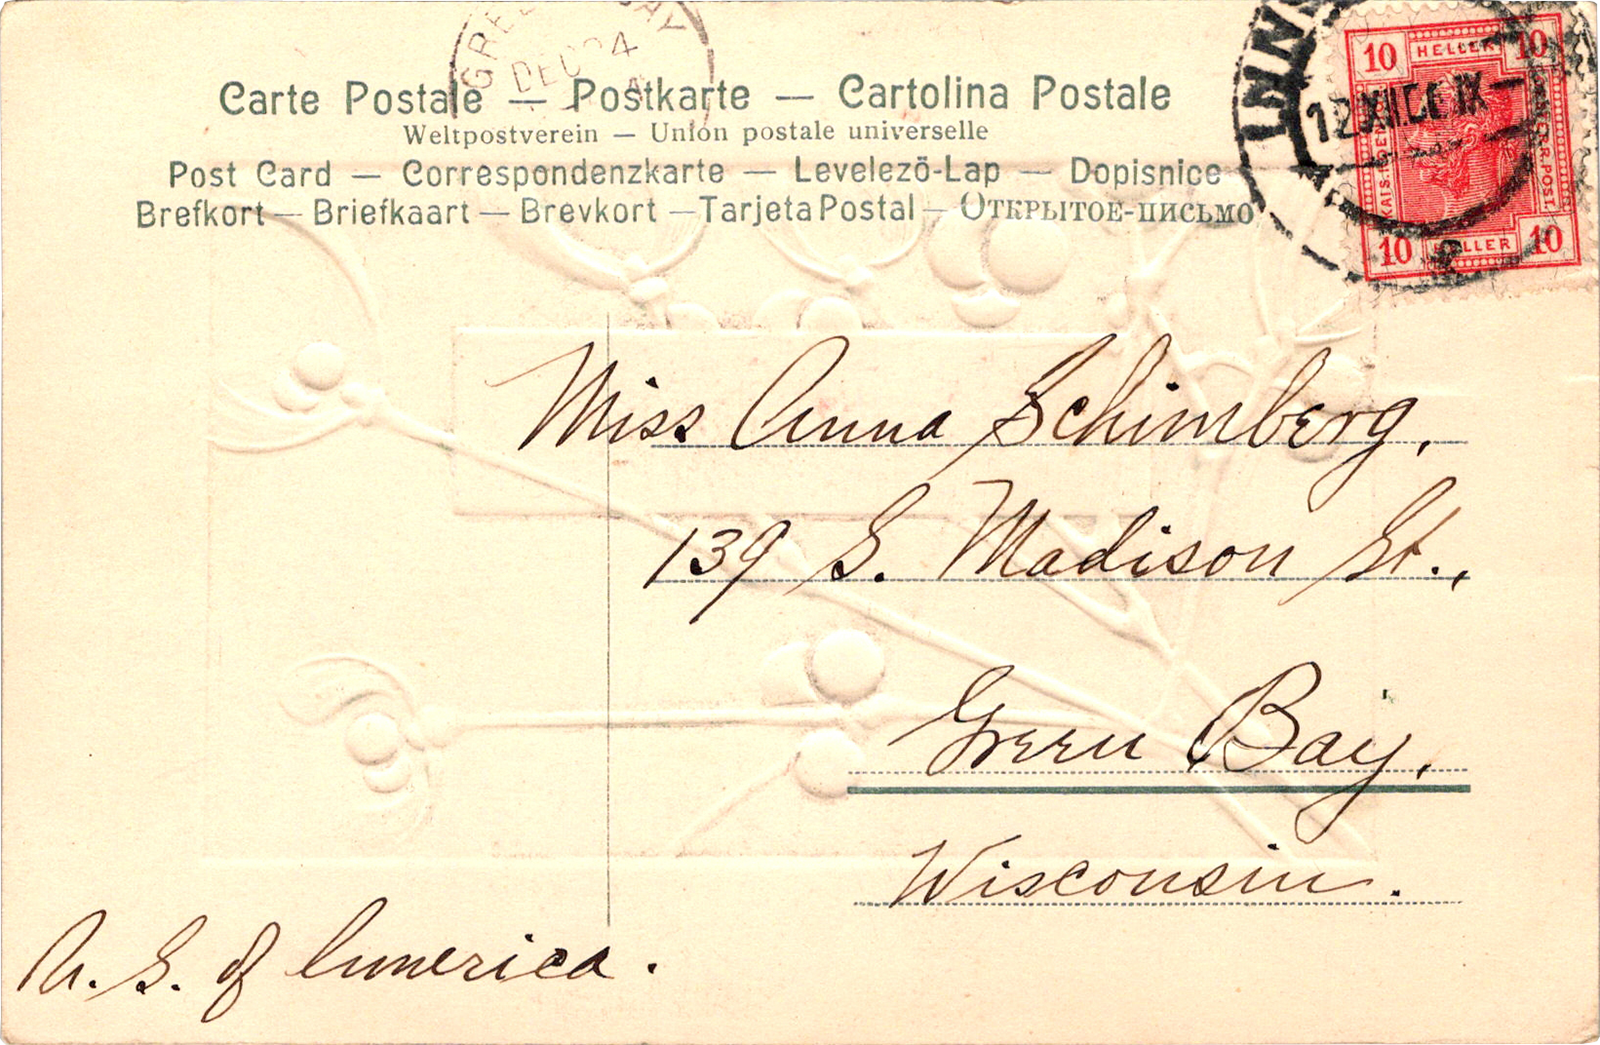 Carte Postale — Postkarte — Cartolina Postale
Weltpostverein — Union postale universelle
Post Card — Correspondenzkarte — Levelezö-Lap — Dopisnice
Brefkort — Briefkaart — Brevkort — Tarjeta Postal — Открытое-письмо
DEC 24
INNS
10 HELLER 10
12.XII
10 HELLER 10
Miss Anna Schimberg,
139 S. Madison St.,
Green Bay,
Wisconsin.
U. S. of America.